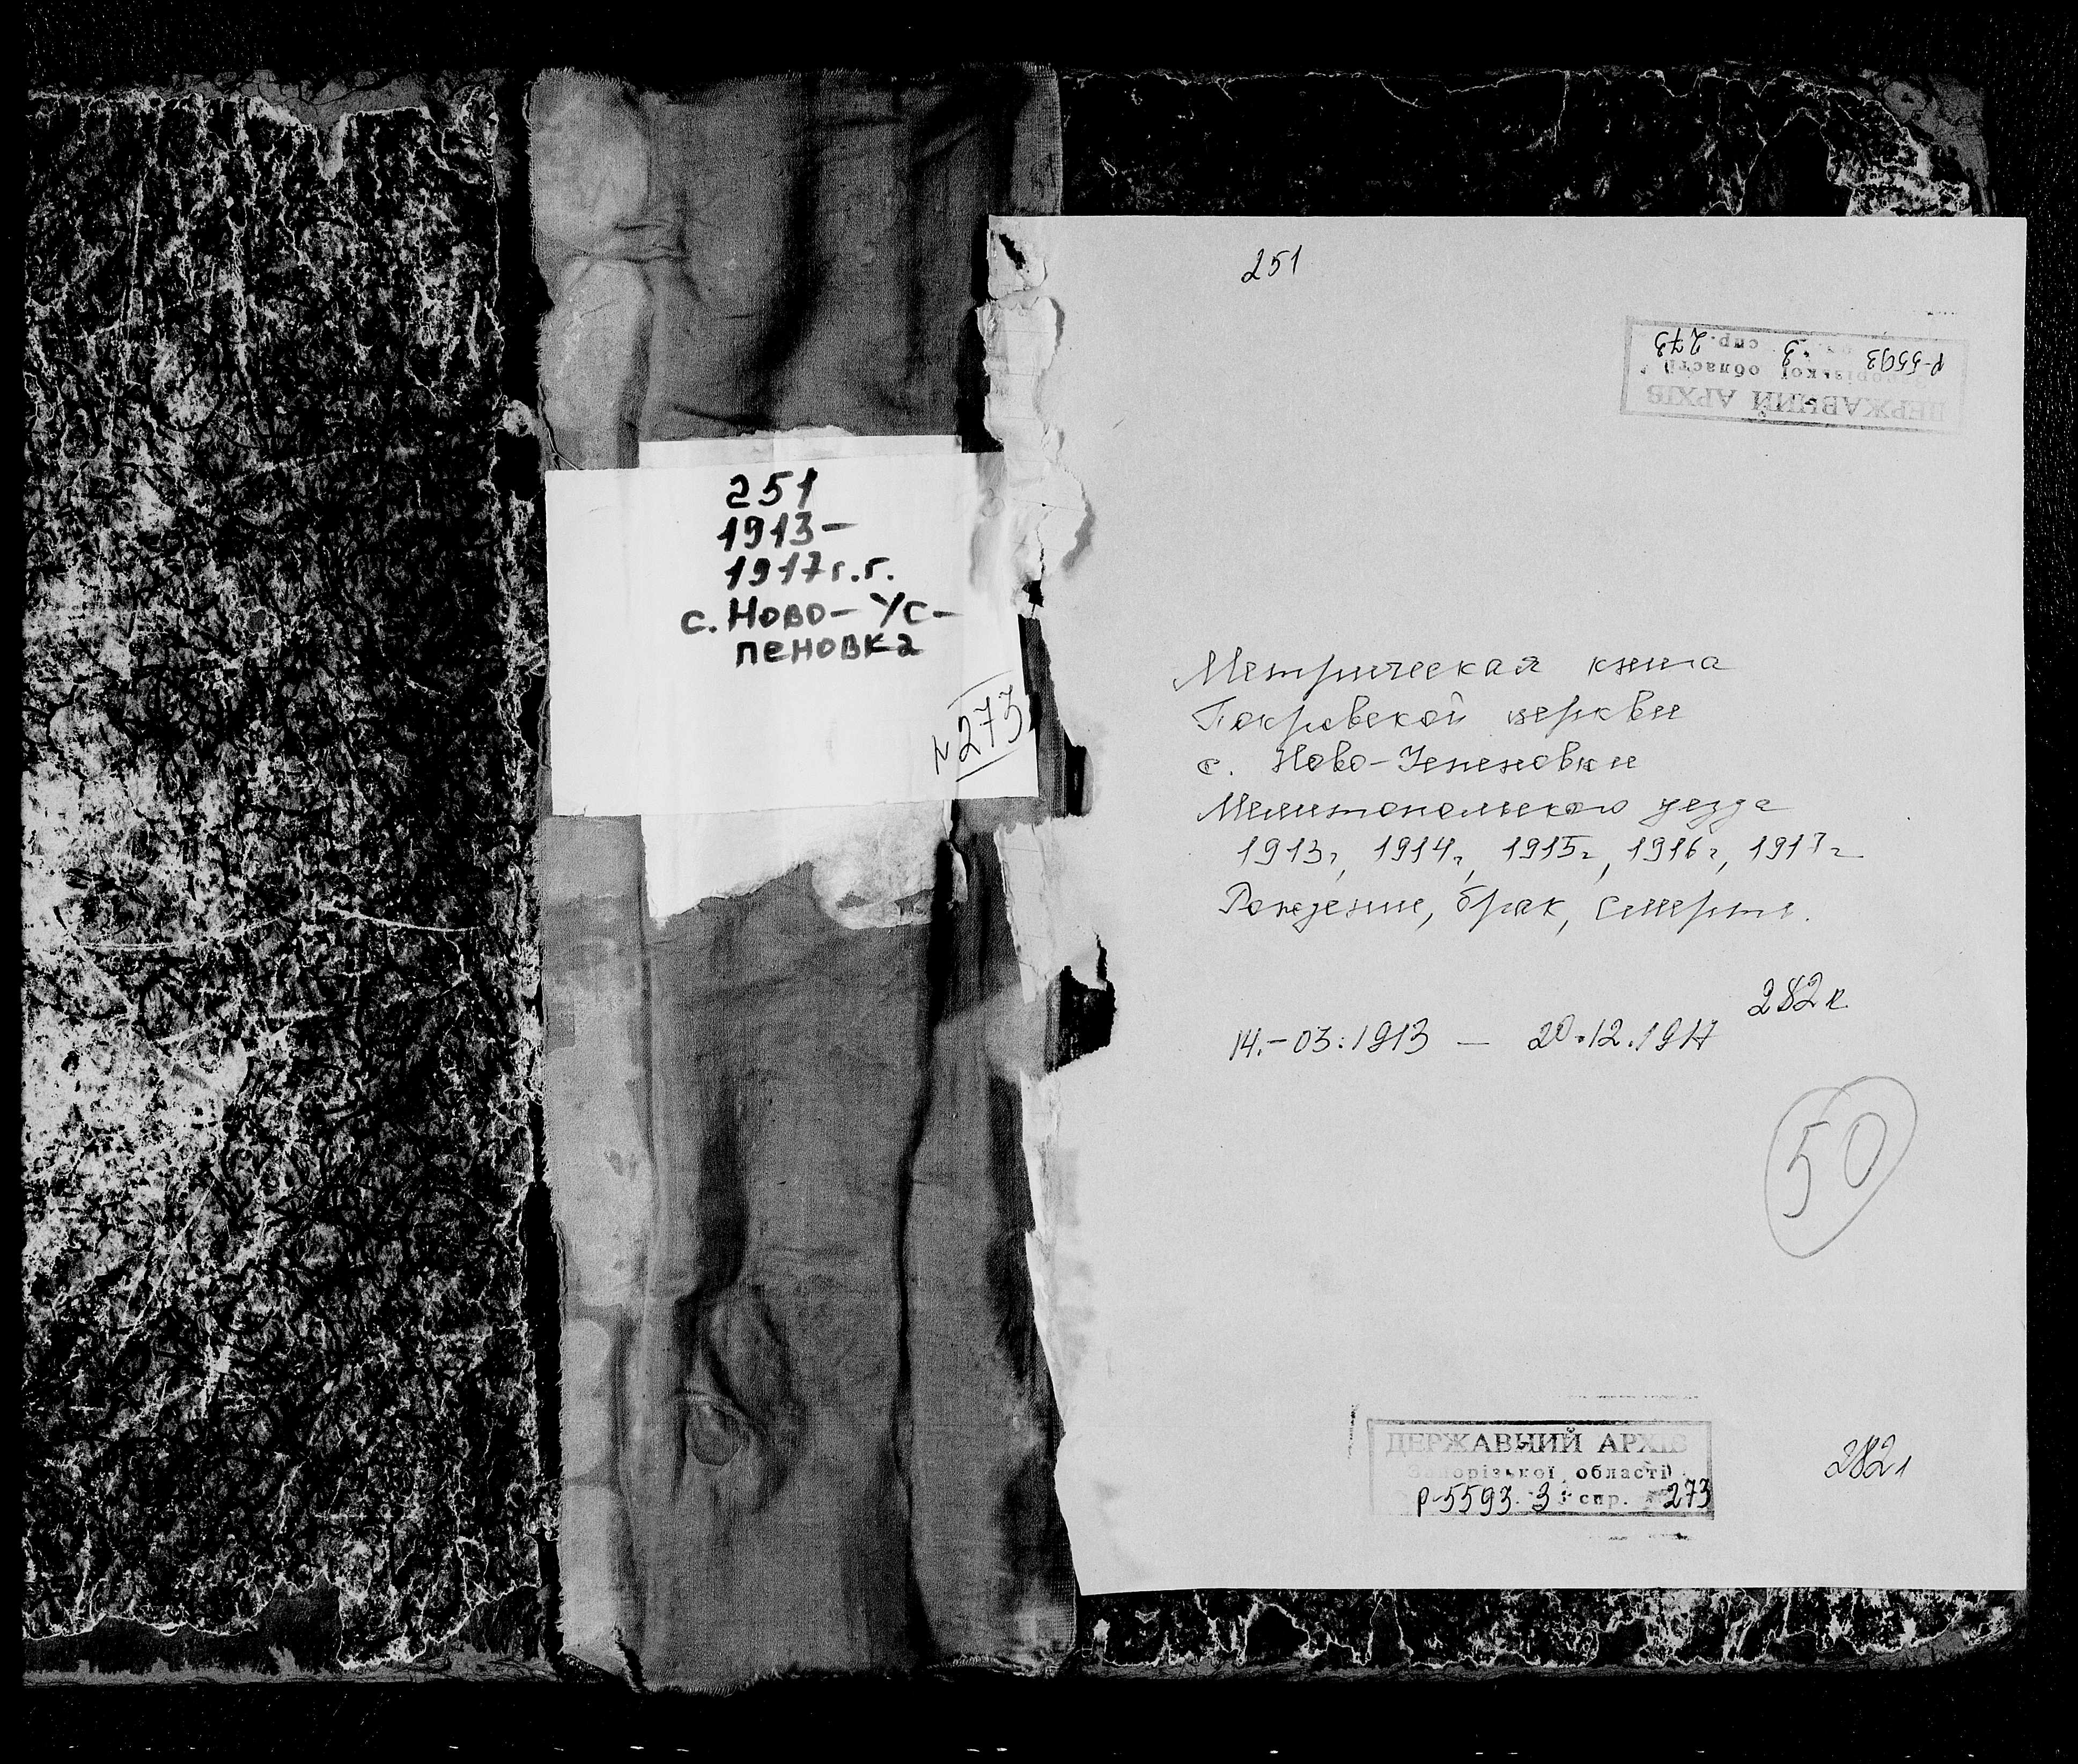 251
1913-
1917г.г.
с. Ново-Ус-
пеновка
№273
251
ДЕРЖАВНИЙ АРХІВ
Запорізької області
Р-5593 3 спр. 273
Метрическая книга
Покровской церкви
с. Ново-Успеновки
Мелитопольского уезда
1913г, 1914г, 1915г, 1916г, 1917г
Рождение, брак, смерть.
282 л
14.-03.1913 — 20.12.1917
50
ДЕРЖАВНИЙ АРХІВ
Запорізької області
Р-5593. 3 спр. 273
282 л